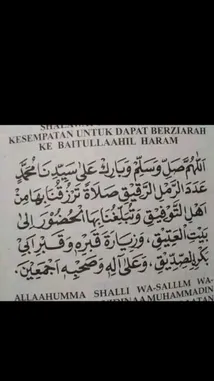 KESEMPATAN UNTUK DAPAT BERZIARAH
KE BAITULLAAHIL HARAM
اَللّٰهُمَّ صَلِّ وَسَلِّمْ وَبَارِكْ عَلٰى سَيِّدِنَا مُحَمَّدٍ
عَدَدَ الرَّمْلِ الرَّقِيْقِ صَلَاةً تَرْزُقُنَا بِهَا مِنْ
اَهْلِ التَّوْفِيْقِ وَتُبَلِّغُنَا بِهَا الْحُضُوْرَ اِلٰى
بَيْتِ الْعَتِيْقِ، وَزِيَارَةِ قَبْرِهِ وَقَبْرِ اَبِيْ
بَكْرِ الصِّدِّيْقِ، وَعَلٰى اٰلِهِ وَصَحْبِهِ اَجْمَعِيْنَ.
ALLAAHUMMA SHALLI WA-SALLIM WA-